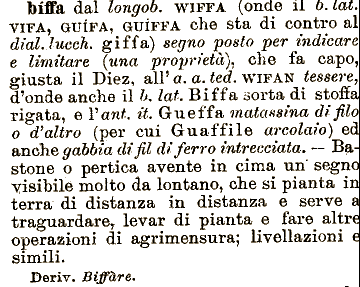 biffa dal longob. WIFFA (onde il b. lat.
VIFA, GUÍFA, GUÍFFA che sta di contro al
dial. lucch. giffa) segno posto per indicare
e limitare (una proprietà), che fa capo,
giusta il Diez, all' a. a. ted. WIFAN tessere,
d'onde anche il b. lat. Biffa sorta di stoffa
rigata, e l'ant. it. Gueffa matassina di filo
o d'altro (per cui Guaffile arcolaio) ed
anche gabbia di fil di ferro intrecciata. — Ba-
stone o pertica avente in cima un segno
visibile molto da lontano, che si pianta in
terra di distanza in distanza e serve a
traguardare, levar di pianta e fare altre
operazioni di agrimensura; livellazioni e
simili.
Deriv. Biffàre.